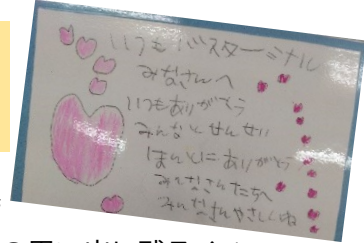 いつもバスターミナル
みなさんへ
いつもありがとう
みんなとせんせい
ほんとにありがとう
みなさんたちへ
みんなさんやさしいね